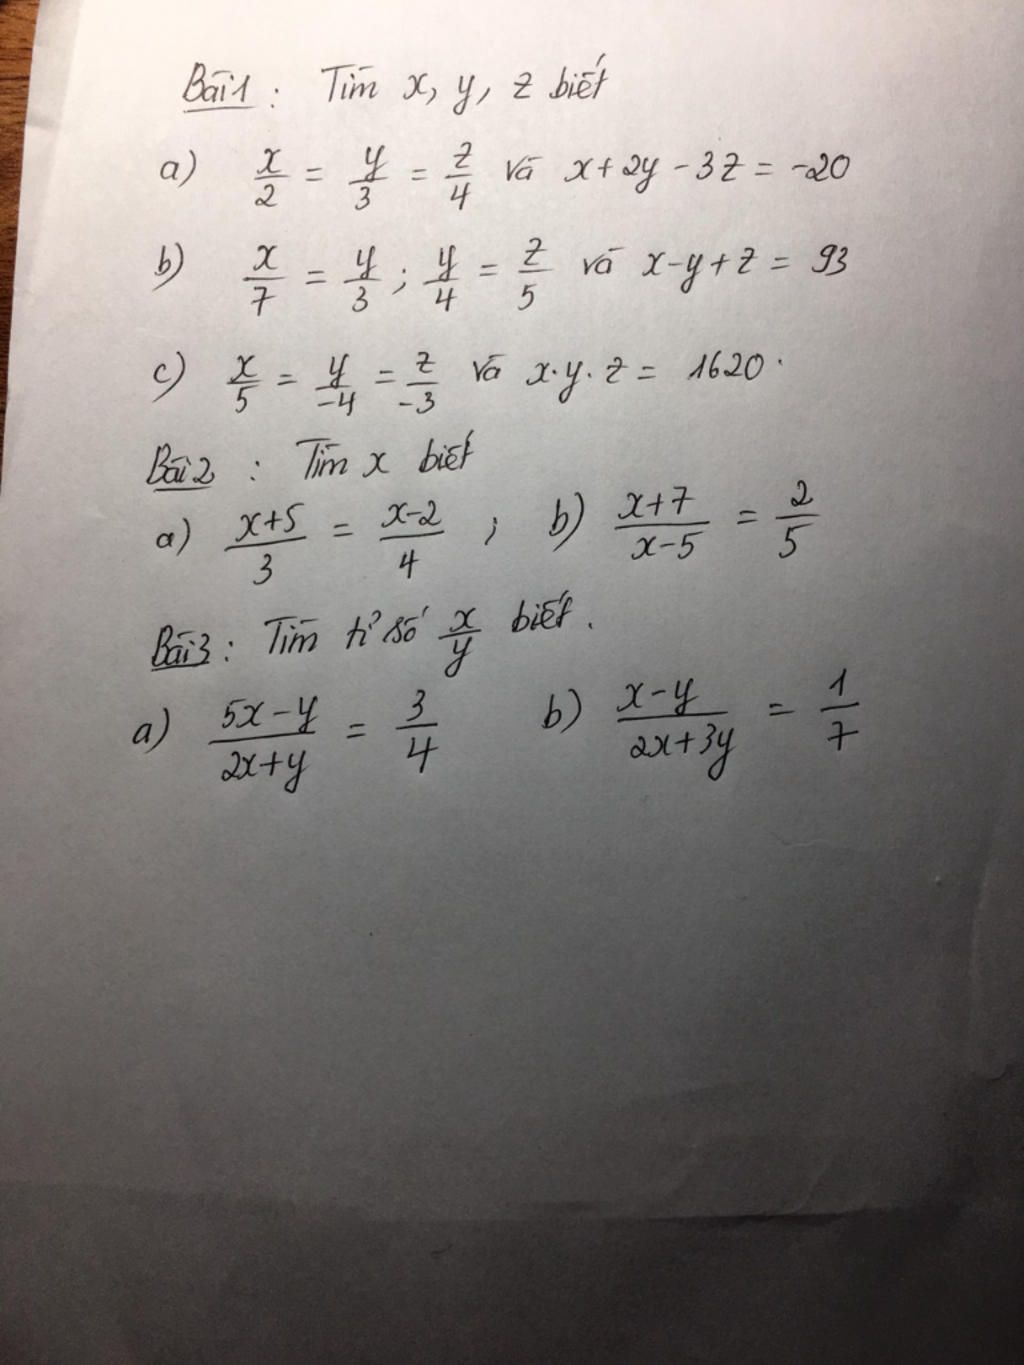 Bài 1 : Tìm x, y, z biết
a) x/2 = y/3 = z/4 và x + 2y - 3z = -20
b) x/7 = y/3 ; y/4 = z/5 và x - y + z = 93
c) x/5 = y/-4 = z/-3 và x.y.z = 1620.
Bài 2 : Tìm x biết
a) x+5/3 = x-2/4 ; b) x+7/x-5 = 2/5
Bài 3 : Tìm tỉ số x/y biết.
a) 5x-y/2x+y = 3/4 b) x-y/2x+3y = 1/7